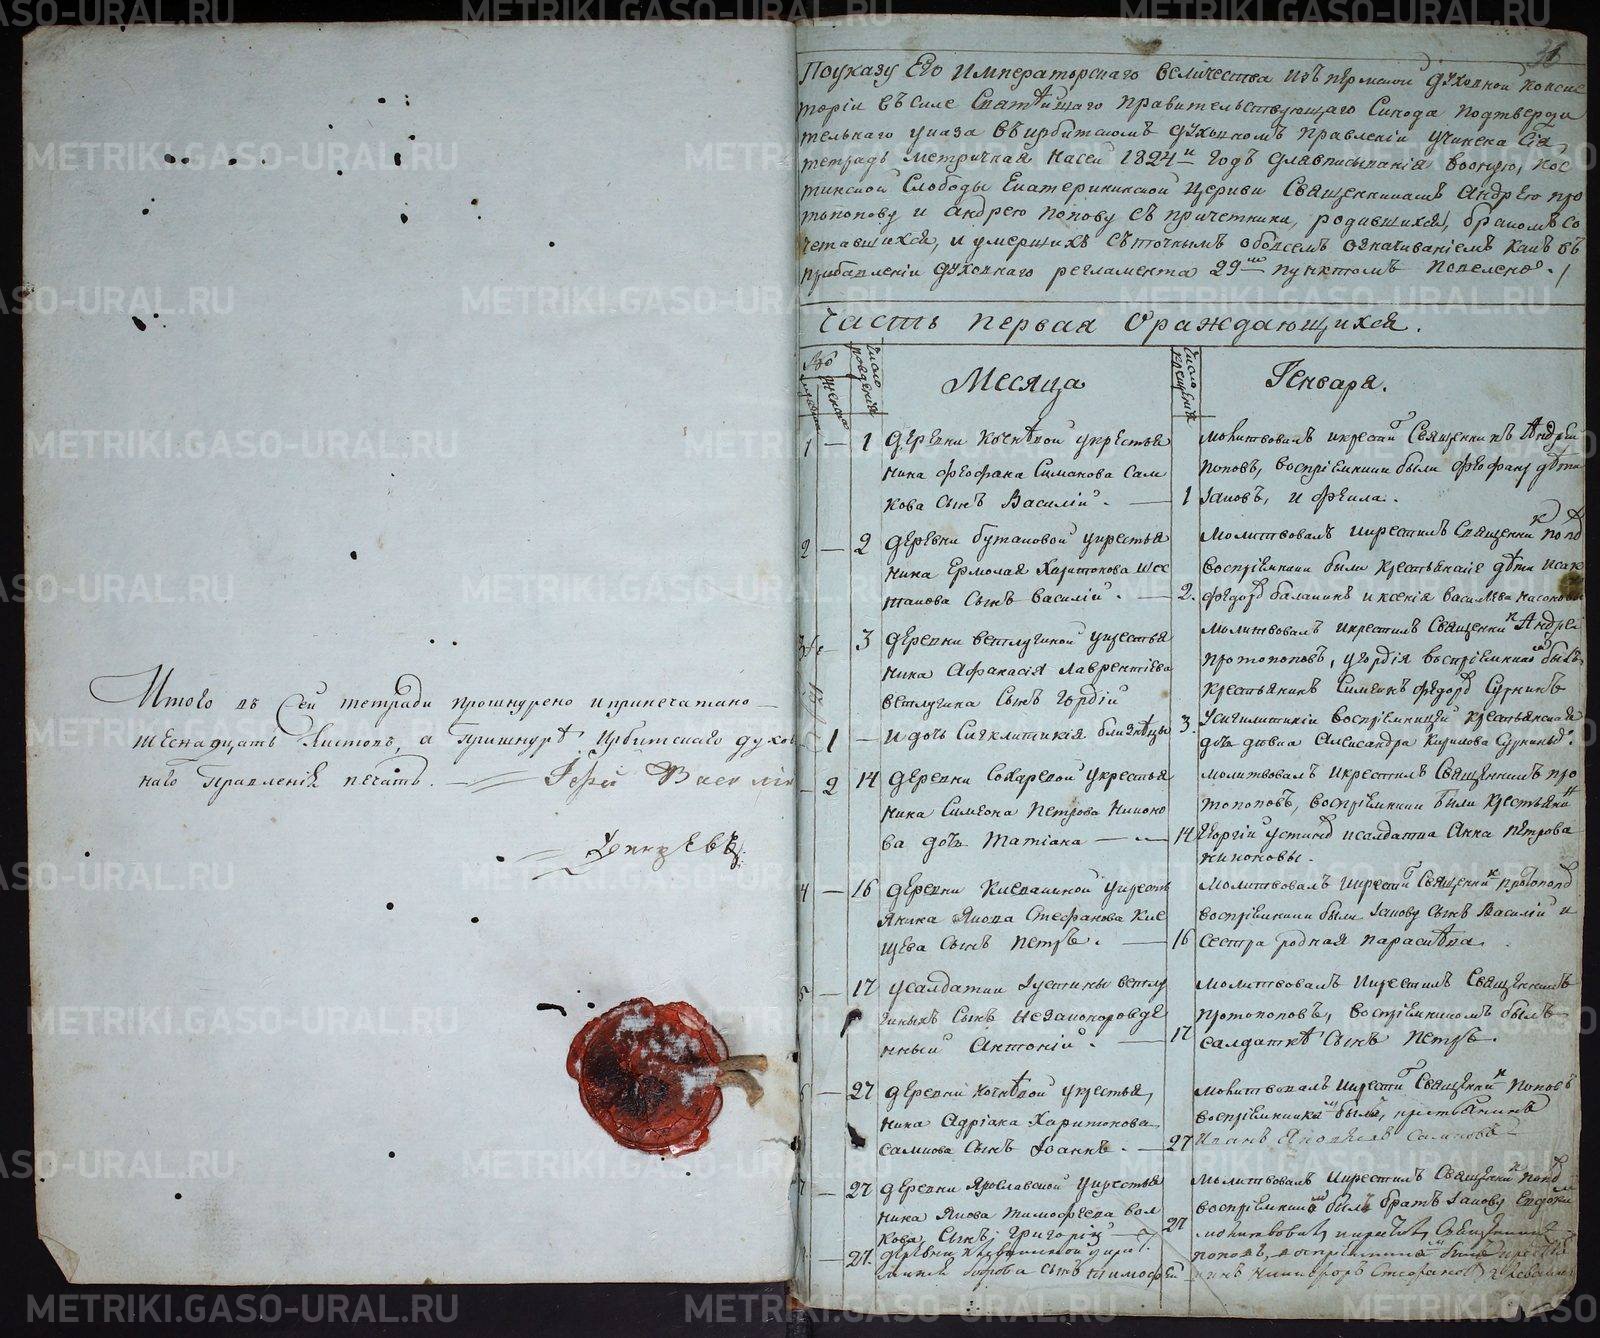 Итого въ сей тетради прошнурено и припечатано
шеснадцать листовъ, а при шнурѣ Ирбитскаго духов
наго Правленія печать.
Іерей
По указу Его Императорскаго Величества изъ Пермской Духовной Консис
торіи въ силе Святѣйшаго Правительствующаго Синода подтверди
тельнаго указа въ Ирбитскомъ Духовномъ Правленіи учинена Сія
тетрадь метричная на сей 1824й годъ для вписыванія въ оную,
тинской Слободы Екатерининской Церкви Священникамъ Андрею Про
топопову и Андрею Попову съ причетники, родившихся, бракомъ со
четавшихся, и умершихъ съ точнымъ о всемъ означиваніемъ какъ въ
прибавленіи духовнаго регламента 29мъ пунктомъ повелено.
Часть первая о раждающихся.
число рожденія
Месяца
число крещенія
Генваря.
1 — 1 деревни Кочнѣвой у крестья
нина Феофана Симанова Сам
кова сынъ Василій. — 1
молитвовалъ и крестилъ Священникъ Андрей
Поповъ, воспріемники были
и Фекла.
2 — 2 деревни Бутаковой у крестья
нина Ермолая Харитонова Шес
такова сынъ Василій. — 2.
Молитвовалъ и крестилъ Священникъ Поповъ
воспріемники были крестьянскіе дѣти Исак
Федоръ Балакинъ и Ксенія Васильева
3 — 3 деревни Ветлугиной у крестья
нина Афанасія Лаврентіева
Ветлугина сынъ Гордій
— 1 — и дочь Сигклитикія близнѣцы 3.
молитвовалъ и крестилъ Священникъ Андрей
Протопоповъ, у Гордія воспріемникомъ былъ
крестьянинъ Симеонъ Федоръ Суриинъ
у Сигклитикіи воспріемницей крестьянская
дочь девка Александра Кирилова Суриныхъ.
— 2 14 деревни Сохаревой у крестья
нина Симеона Петрова Никоно
ва дочь Татіана — 14
молитвовалъ и крестилъ Священникъ Про
топоповъ, воспріемники были крестьянинъ
Георгій Устинов и салдатка Анна Петрова
Никоновы.
4 — 16 деревни Клевакиной у кресть
янина Якова Стефанова Кле
щева сынъ Петръ. — 16
молитвовалъ и крестилъ Священникъ Протопопов
воспріемники были Іакову сынъ Василій и
сестра родная Парасковья.
5 — 17 у салдатки Іустины Ветлу
гиныхъ сынъ незаконорожде
нный Антоній. — 17
молитвовалъ и крестилъ Священникъ
Протопоповъ, воспріемникомъ былъ
салдаткѣ сынъ Петръ.
6 — 27 деревни Кочнѣвой у крестья,
нина Адріана Харитонова
Самкова сынъ Іоаннъ. — 27
молитвовалъ и крестилъ Священникъ Поповъ
воспріемникомъ былъ, крестьянинъ
Иванъ Яковлевъ Самковъ
7 — 27 деревни Ярославской у крестья
нина Якова Тимофеева Вол
кова, сынъ Григорій — 27
молитвовалъ и крестилъ Священникъ Поповъ
воспріемникомъ былъ братъ Іакову Евдоким
— 27. деревни Клевакиной у крест.
сынъ Тимофей
молитвовалъ и крестилъ Священникъ
Поповъ, воспріемникомъ былъ крестья
нинъ Никифоръ Стефановъ